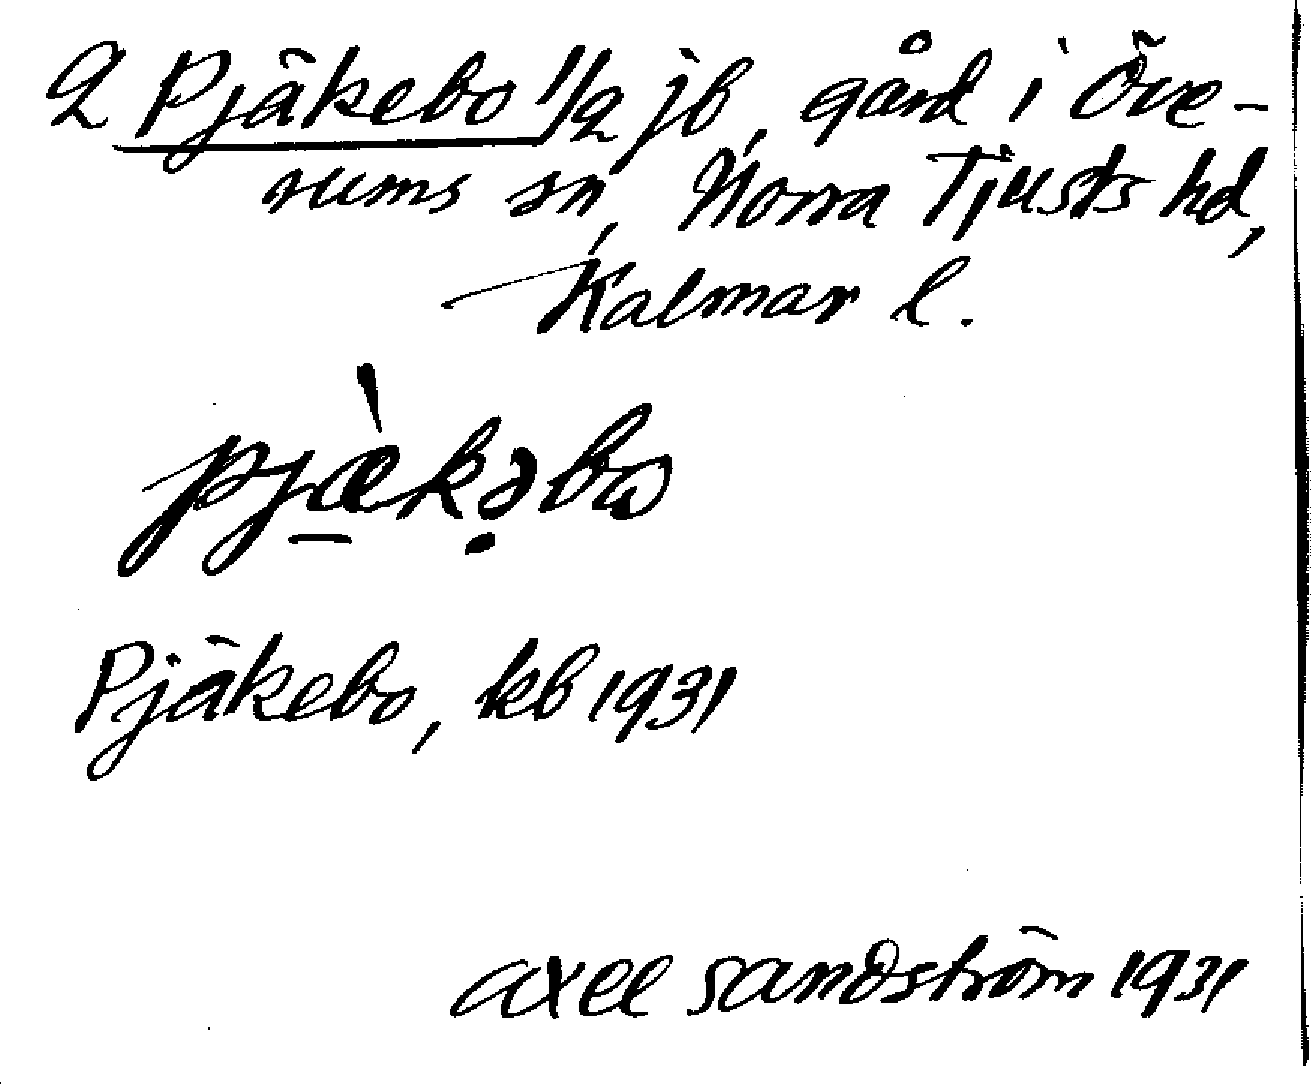 2 Pjäkebo 1/2 jb, gård i Öve-
rums sn, Norra Tjusts hd,
Kalmar l.
pjæ̠̀kə̣bω
Pjäkebo, kb 1931
Axel Sandström 1931